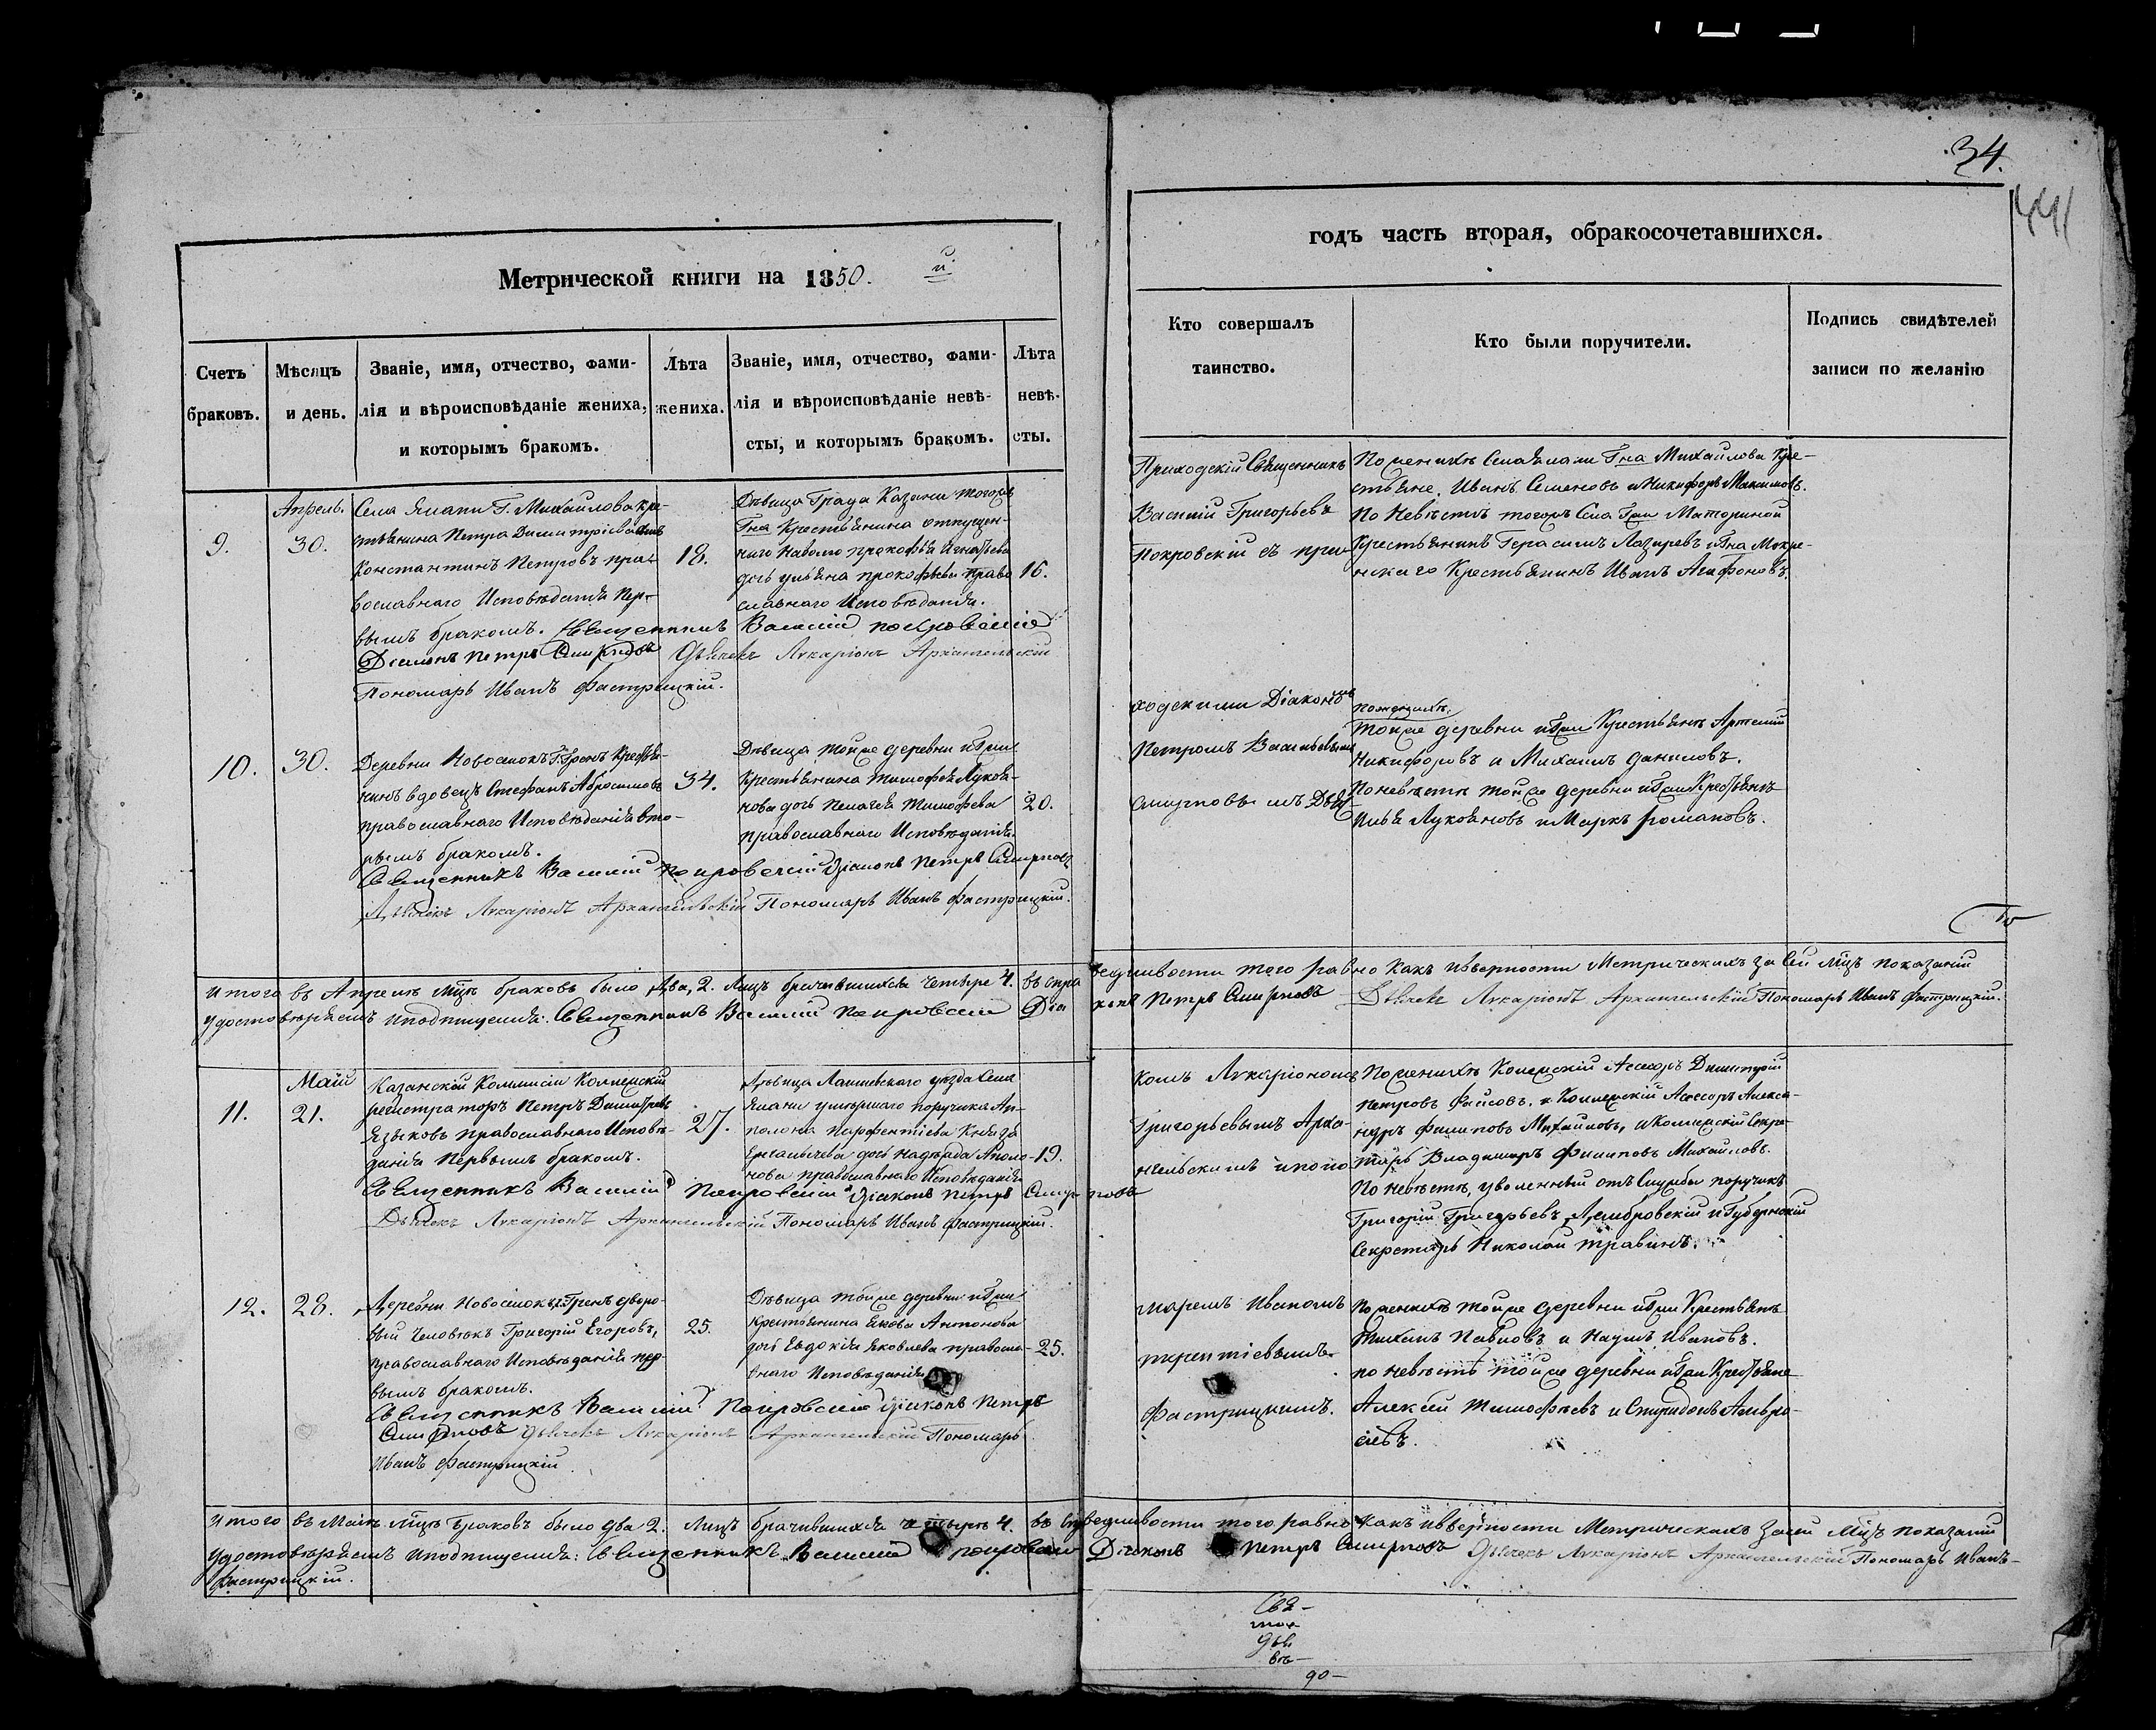 34.
441
Метрической книги на 1850. й
годъ часть вторая, обракосочетавшихся.
Счетъ браковъ.
Мѣсяцъ и день.
Званіе, имя, отчество, фами-
лія и вѣроисповѣданіе жениха,
и которымъ бракомъ.
Лѣта
жениха.
Званіе, имя, отчество, фами-
лія и вѣроисповѣданіе невѣ-
сты, и которымъ бракомъ.
Лѣта
невѣ-
сты.
Кто совершалъ
таинство.
Кто были поручители.
Подпись свидѣтелей
записи по желанію
9.
Апрель.
30.
Села Емати Г. Михайлова кре-
стьянина Петра Димитріева сынъ
Константинъ Петровъ пра-
вославнаго Исповѣданія пер-
вымъ бракомъ. Священникъ Василій Покровскій
Діаконъ Петръ Смирновъ Дьячекъ Лукаріонъ Архангельскій
Пономарь Иванъ Фастрицкій.
18.
Дѣвица Града Казани тогожъ
Гна Крестьянина отпущен-
наго на волю прокофья Игнатьева
дочь ульяна прокофьева право
славнаго Исповѣданія.
16.
Приходскій Священникъ
Василій Григорьевъ
Покровскій съ при
По женихѣ Села Гна Михайлова Кре-
стьяне. Иванъ Семеновъ и Никифоръ Максимовъ.
По Невѣстѣ тогожъ Села Гжи Материной
Крестьянинъ Герасимъ Лазаревъ и Гна Мокре-
нскаго Крестьянинъ Иванъ Агафоновъ.
10.
30.
Деревни Новоселокъ Крестья-
нинъ вдовецъ Стефанъ Абросимовъ
православнаго Исповѣданія вто-
рымъ бракомъ.
Священникъ Василій Покровскій Діаконъ Петръ Смирновъ
Дьячекъ Лукаріонъ Архангельскій Пономарь Иванъ Фастрицкій.
34.
Дѣвица тойже деревни и Гжи
Крестьянина Тимофея Лукоя-
нова дочь Пелагея Тимофеева
православнаго Исповѣданія.
20.
ходскими Діакономъ
Петромъ Васильевымъ
Смирновымъ Дья
по женихѣ.
Тойже деревни и Гжи Крестьяне Артемій
Никифоровъ и Михаилъ Даниловъ.
По невѣстѣ тойже деревни и Гжи Крестьяне
Илья Лукояновъ и Маркъ Романовъ.
Итого въ Апрелѣ мцѣ браковъ было два, 2. Лицъ брачившихся четыре 4. въ спра ведливости того равно какъ и верности Метрическихъ за сей мцъ показаній
удостовѣряемъ и подпишемся: Священникъ Василій Покровскій Діа конъ Петръ Смирновъ Дьячекъ Лукаріонъ Архангельскій Пономарь Иванъ Фастрицкій.
11.
Май
21.
Казанской Коммисіи Коллежскій
регистраторъ Петръ Димитріевъ
Языковъ православнаго Исповѣ-
данія Первымъ бракомъ.
Священникъ Василій Покровскій Діаконъ Петръ Смирновъ
Дьячекъ Лукаріонъ Архангельскій Пономарь Иванъ Фастрицкій.
27.
Дѣвица Лаишевскаго уезда Села
Емати умершаго поручика Ап-
полона Парфентіева Князя
Енгалычева дочь Надежда Аполо-
нова православнаго Исповѣданія
19.
комъ Лукаріономъ
Григорьевымъ Арха-
нгельскимъ и поно
По женихѣ Колежскій Асесоръ Димитрій
Петровъ Фаисовъ. и Коллежскій Асесоръ Алекса-
ндръ Филиповъ Михайловъ, и Колежскій Секре-
тарь Владимиръ Филиповъ Михайловъ.
По невѣстѣ, уволенный отъ службы поручикъ
Григорій Григорьевъ Домбровскій и Губернскій
Секретарь Николай Травинъ.
12.
28.
Деревни Новоселокъ дворо-
вый человѣкъ Григорій Егоровъ,
православнаго Исповѣданія пер-
вымъ бракомъ.
Священникъ Василій Покровскій Діаконъ Петръ
Смирновъ Дьячекъ Лукаріонъ Архангельскій Пономарь
Иванъ Фастрицкій
25.
Дѣвица тойже деревни и Гжи
Крестьянина Якова Антонова
дочь Евдокія Яковлева правосла-
внаго Исповѣданія
25.
маремъ Иваномъ
терентіевымъ
Фастрицкимъ.
По женихѣ тойже деревни и Гжи Крестьяне
Михаилъ Павловъ и Наумъ Ивановъ.
по невѣстѣ тойже деревни и Гжи Крестьяне
Алексѣй Тимофѣевъ и Спиридонъ Амвро-
сіевъ.
Итого въ Маіѣ мцѣ браковъ было два 2. лицъ брачившихся четыре 4. въ справедливости того равно какъ и верности Метрическихъ за сей мцъ показаній
удостовѣряемъ и подпишемся: Священникъ Василій Покровскій Діаконъ Петръ Смирновъ Дьячекъ Лукаріонъ Архангельскій Пономарь Иванъ-
Фастрицкій.
90-